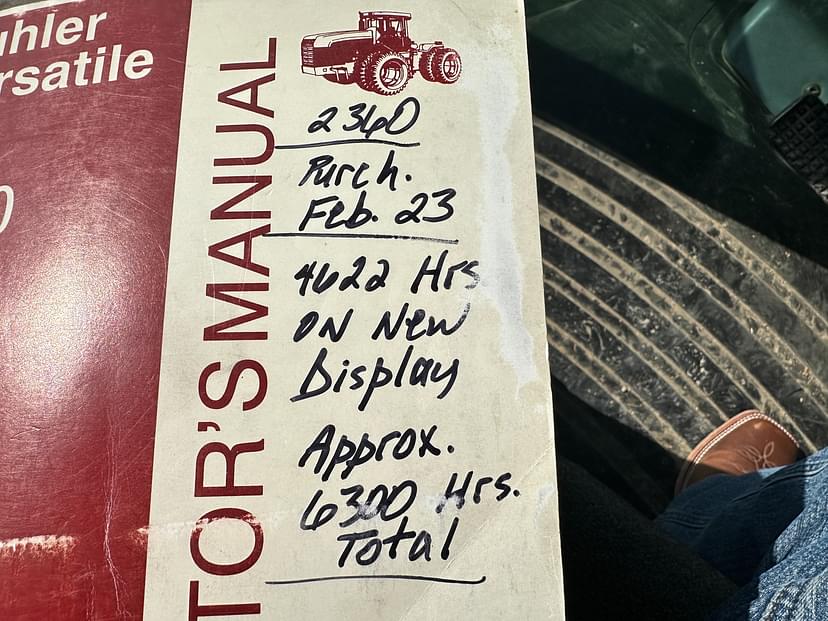 uhler
rsatile
TOR'S MANUAL
2360
Purch.
Feb. 23
4622 Hrs
ON New
Display
Approx.
6300 Hrs.
Total